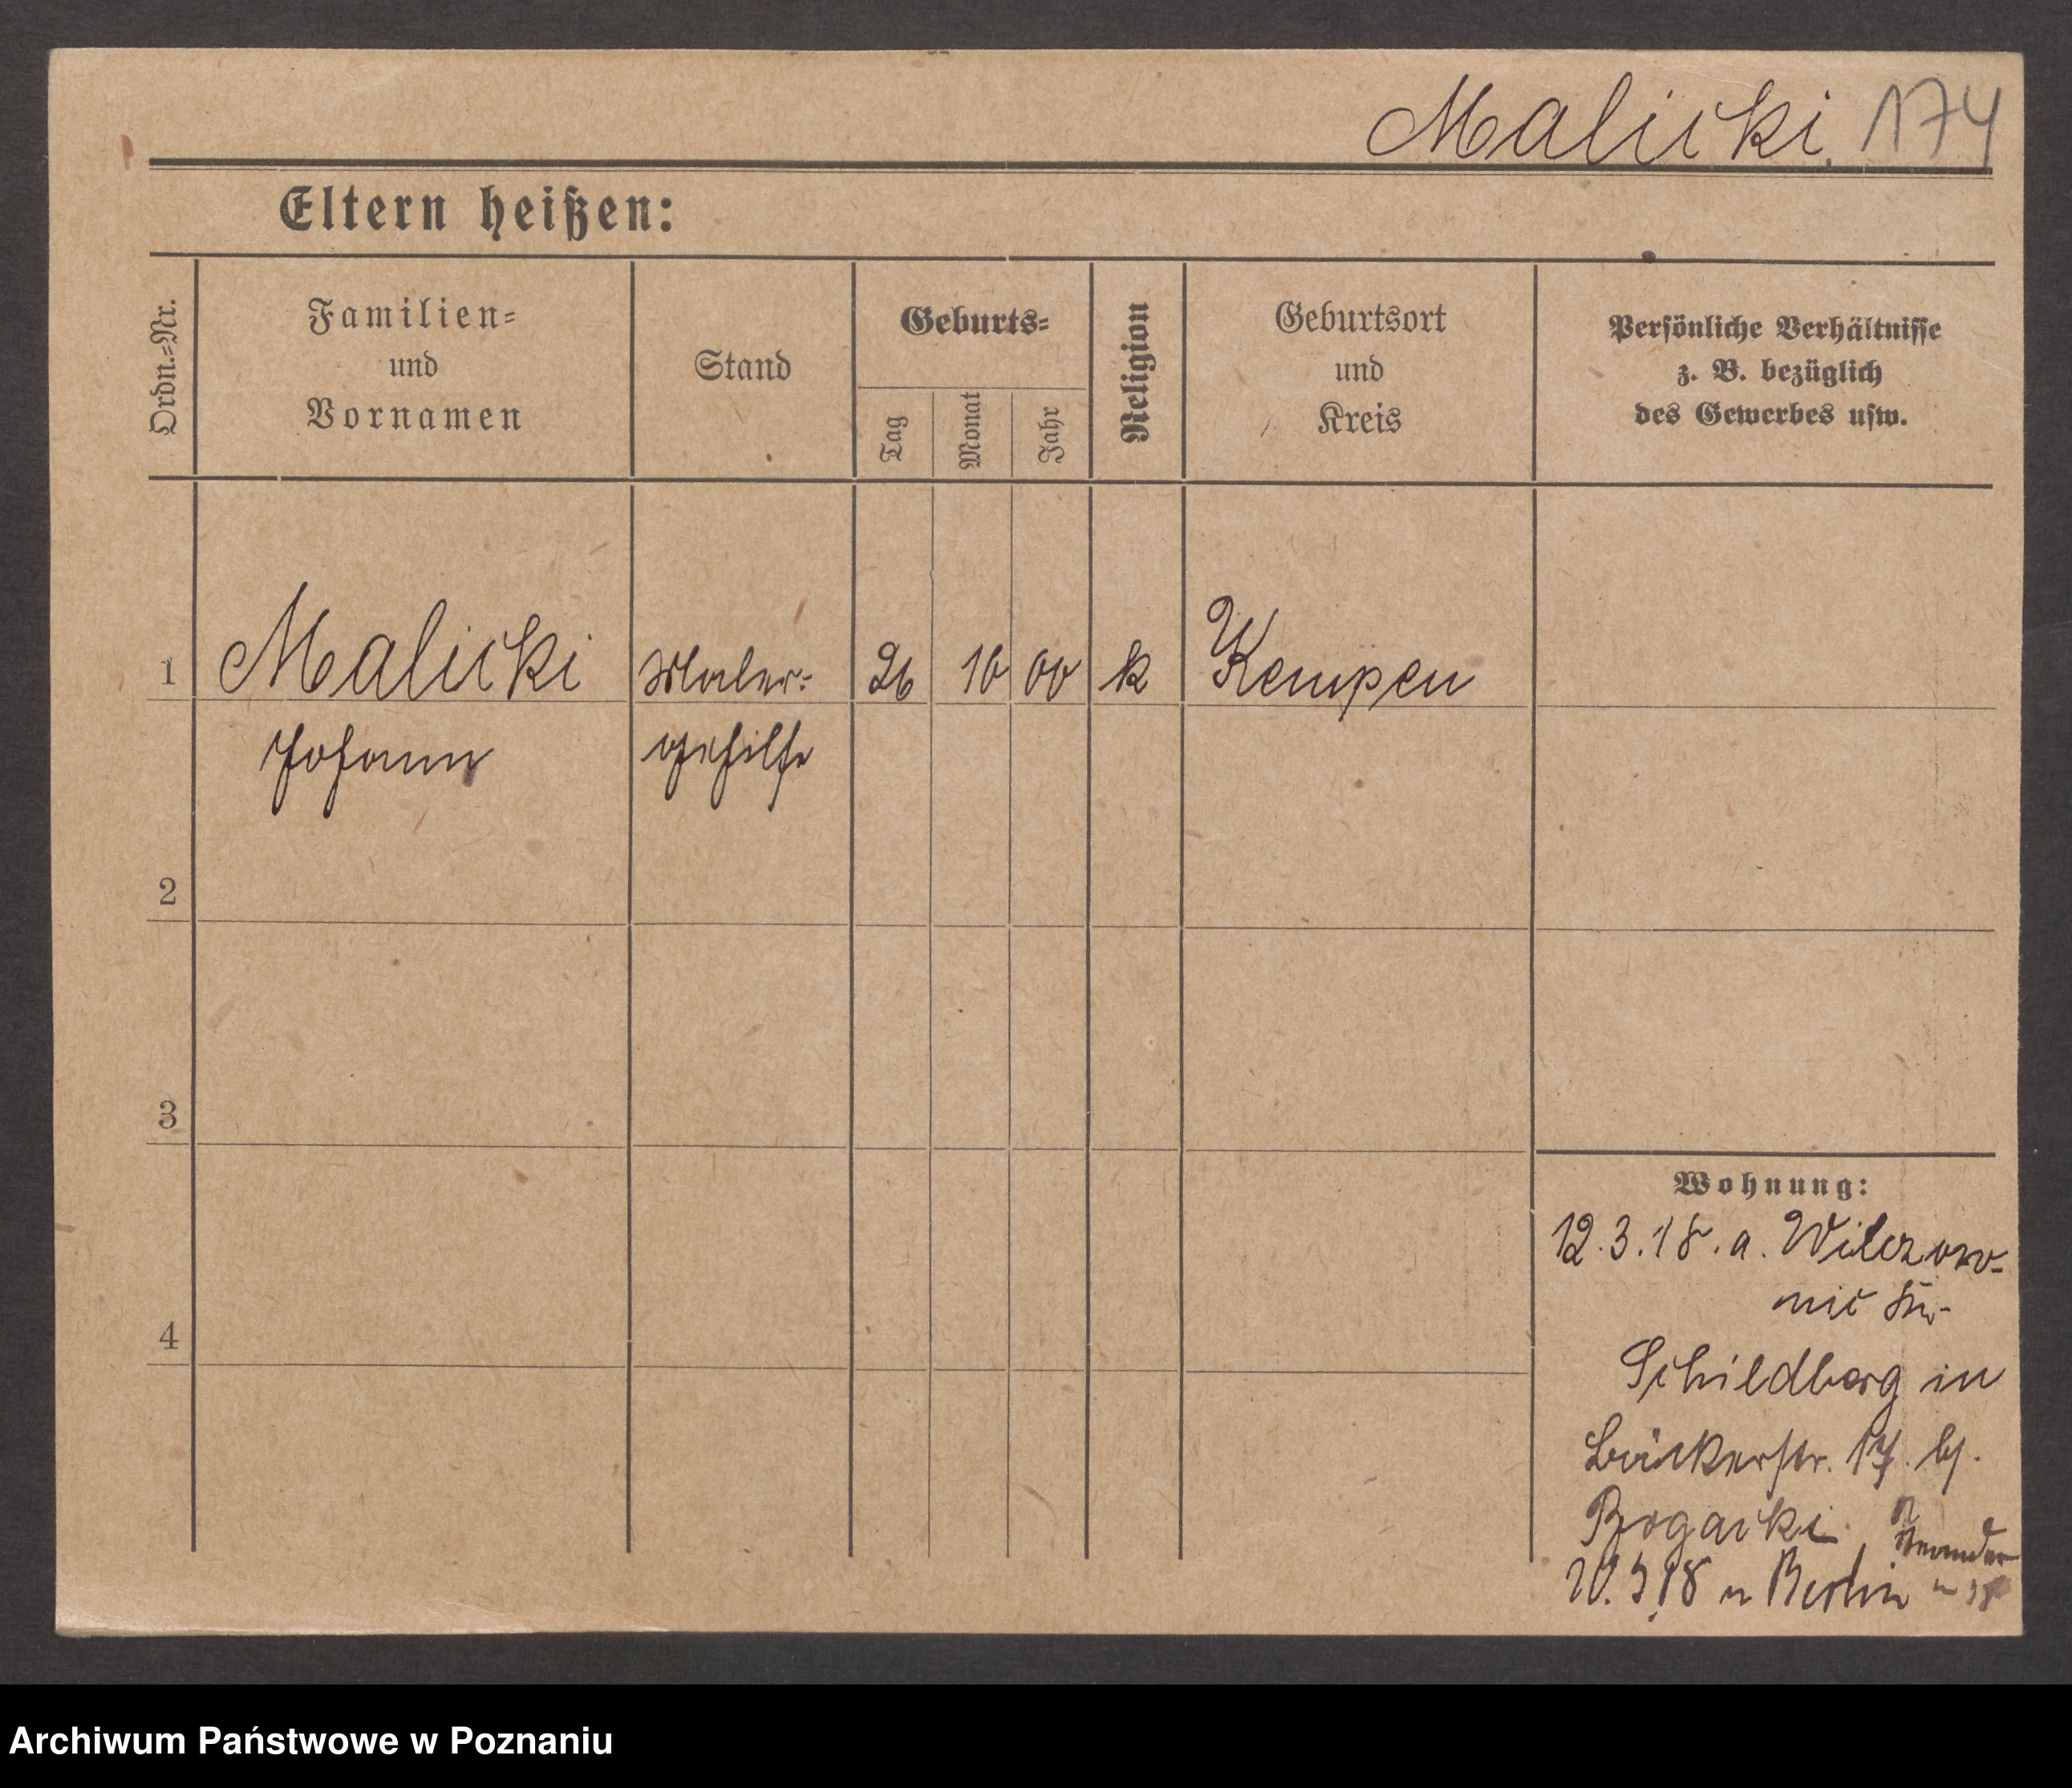 Malicki. 174
Eltern heißen:
Ordn.=Nr.
Familien=
und
Vornamen
Stand
Geburts=
Tag
Monat
Jahr
Religion
Geburtsort
und
Kreis
Persönliche Verhältnisse
z. B. bezüglich
des Gewerbes usw.
1 Malicki Maler= 26 10 00 k Kempen
Johann gehilfe
2
3
4
Wohnung:
12.3.18. a.
Schildberg in
Bäckerstr. 17. b/.
Bogacki
20. 3 18 n Berlin
Archiwum Państwowe w Poznaniu